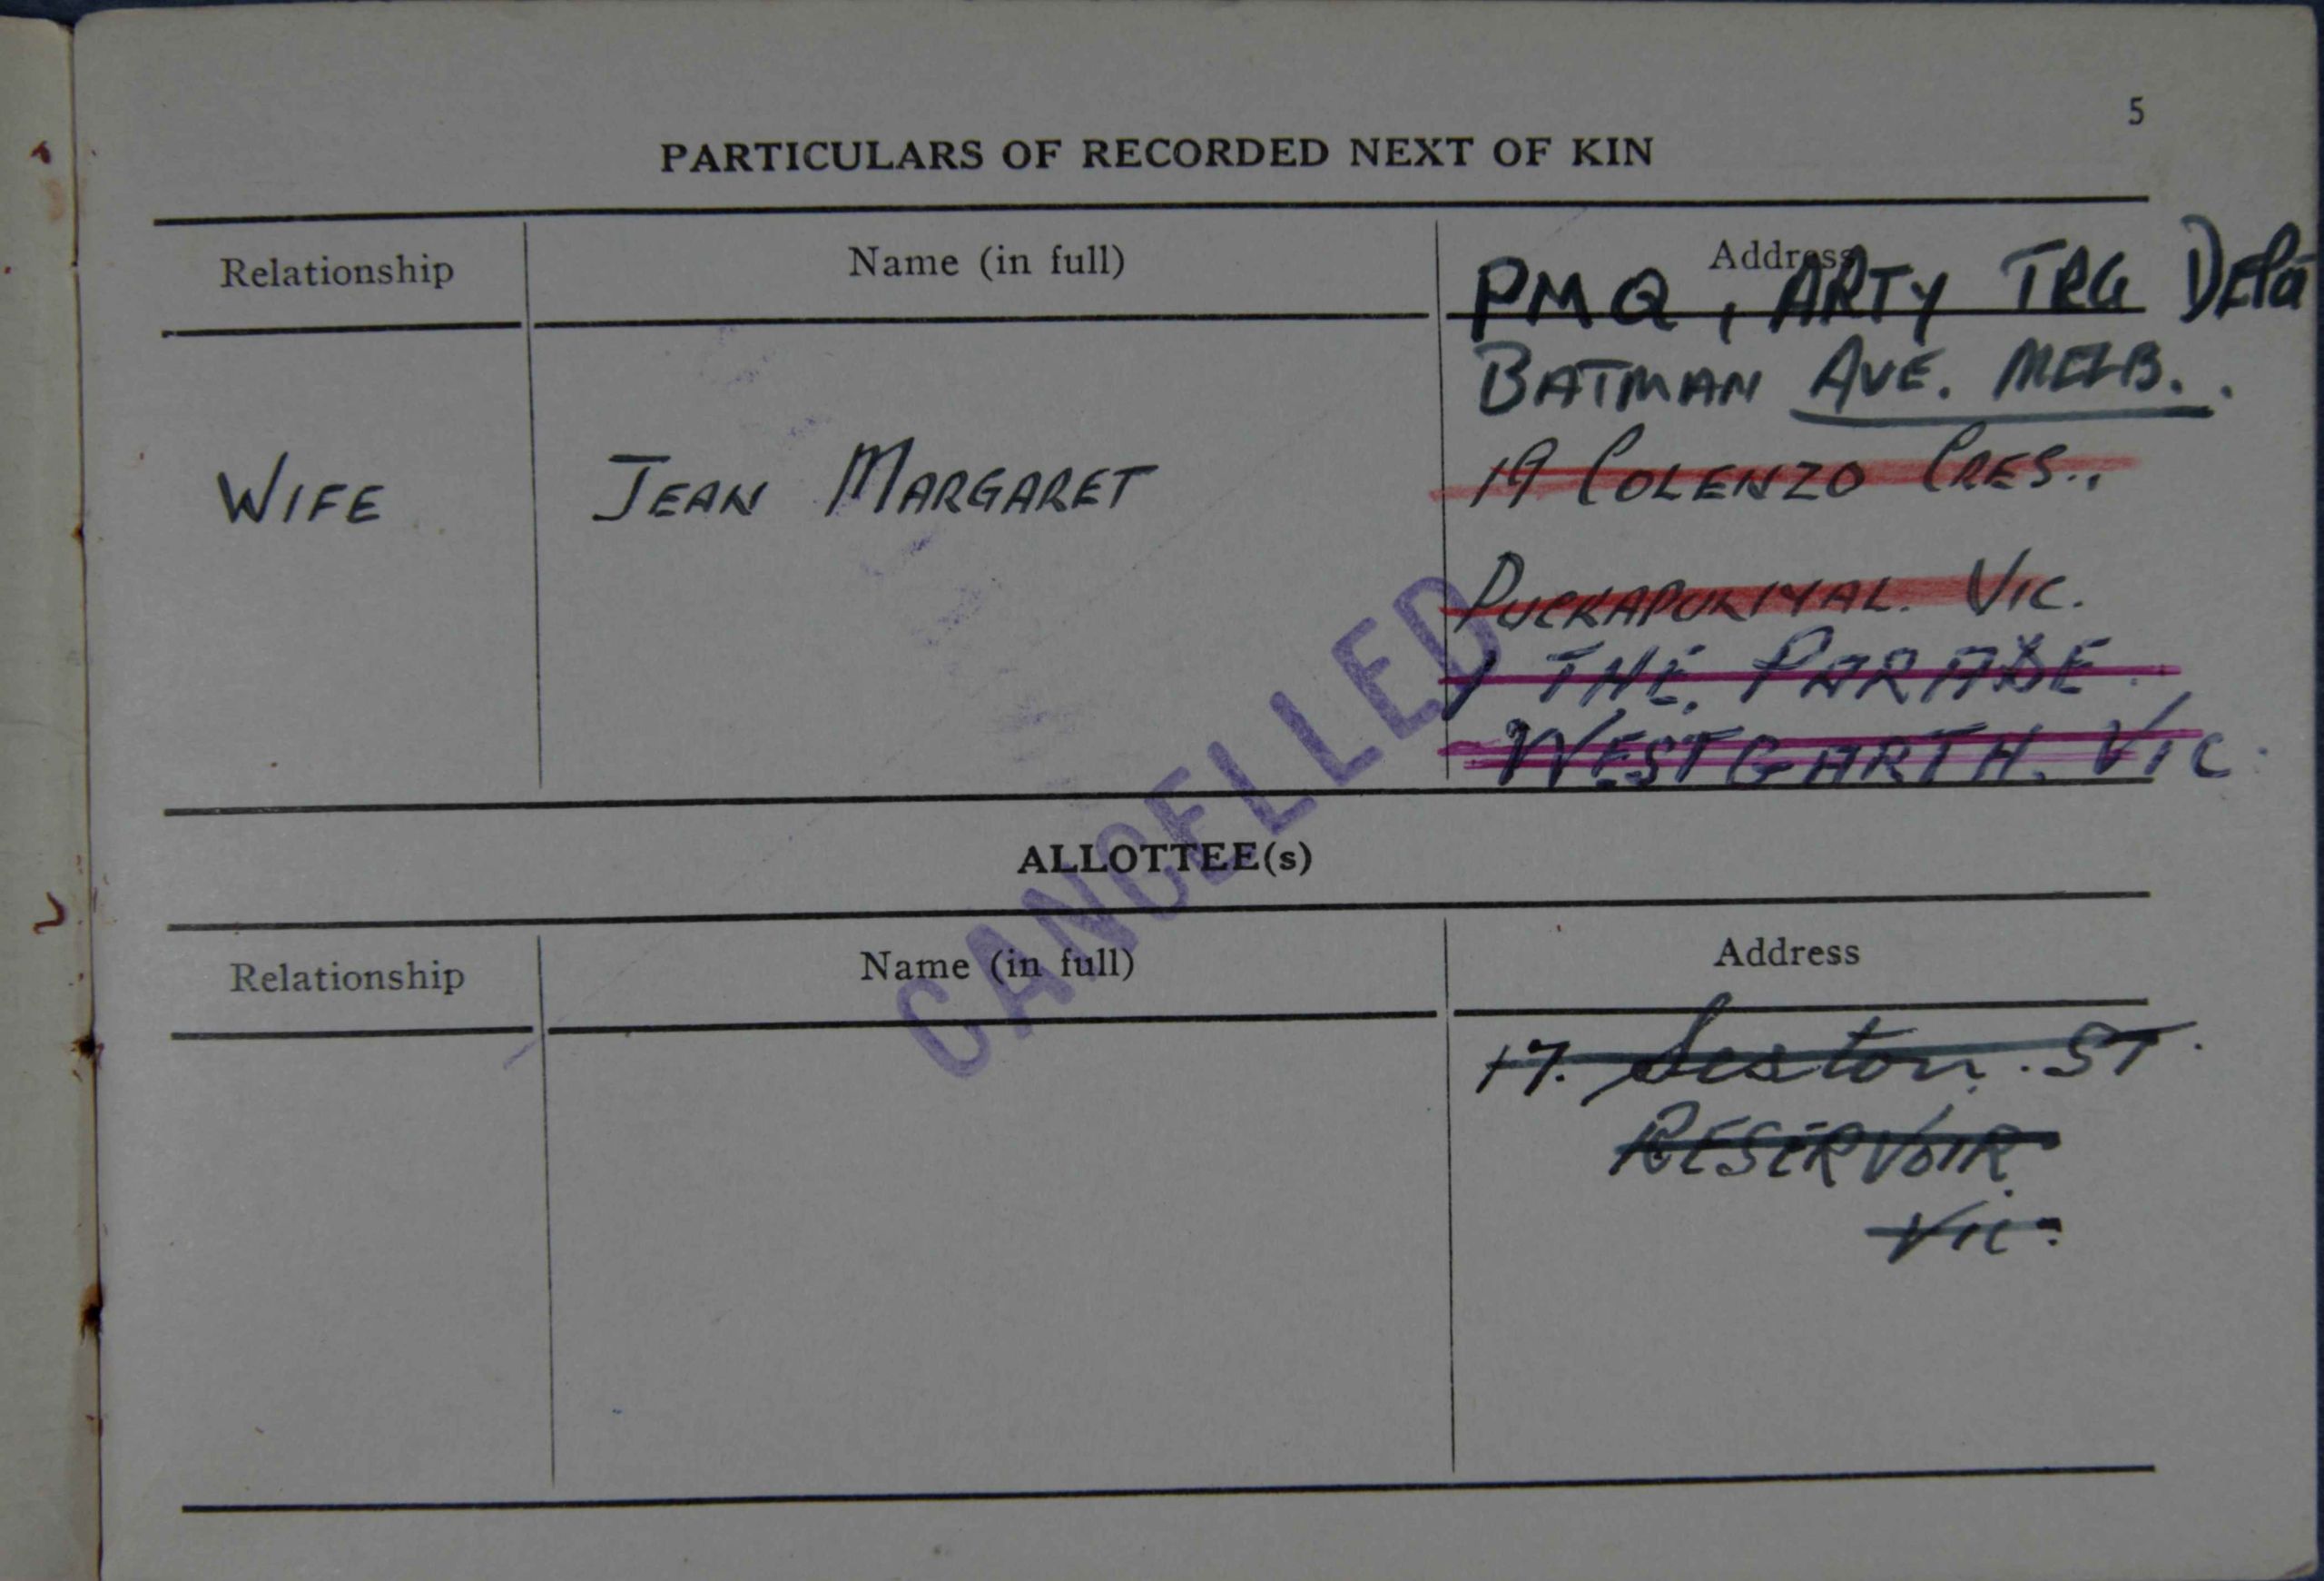 5
PARTICULARS OF RECORDED NEXT OF KIN
Relationship Name (in full) Address
PMQ, ARTY TRG
BATMAN AVE. MELB.
WIFE JEAN MARGARET 19 COLENZO CRES.,
PUCKAPUNYAL. VIC.
1 THE PARADE.
WESTGARTH. VIC.
CANCELLED
ALLOTTEE(s)
Relationship Name (in full) Address
17. ST.
RESERVOIR.
VIC.